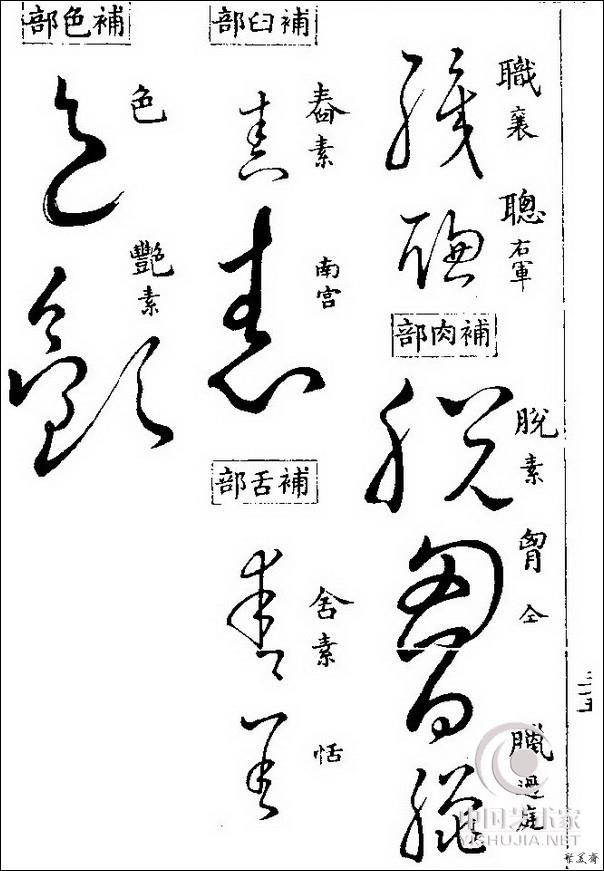 職 襄
聰 右軍
補肉部
脱 素
胷 仝
臘 過庭
補臼部
舂 素
南宫
補舌部
舍 素
恬
補色部
色
艷 素
中国艺术家
YISHUJIA.NET